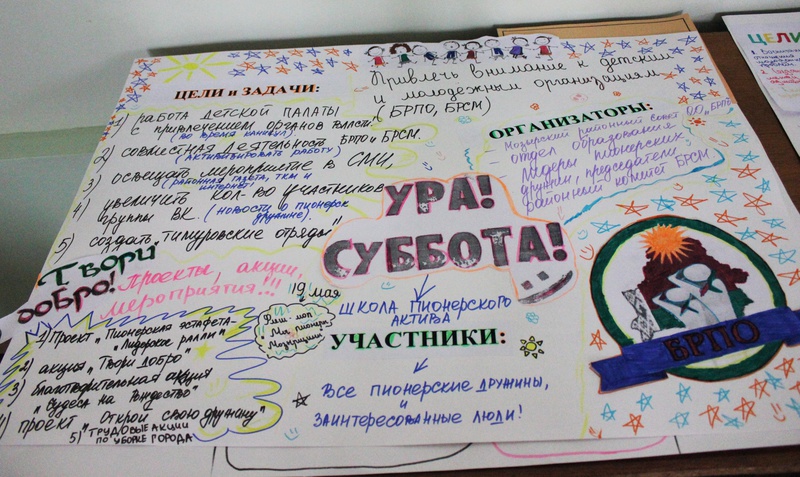 ЦЕЛИ и ЗАДАЧИ:
Привлечь внимание к детским
и молодежным организациям
(БРПО, БРСМ)
1) работа детской палаты
с привлечением органов власти
(во время каникул)
2) совместная деятельность БРПО и БРСМ
(активизировать работу)
3) освещать мероприятие в СМИ,
(районная газета, ТКМ и
интернет)
4) увеличить кол-во участников
группы ВК (новости о пионерск
дружине).
5) создать "тимуровские отряды"
ОРГАНИЗАТОРЫ:
- Мозырский районный совет ОО "БРПО"
- отдел образования
- Лидеры пионерских
дружин, председатели
- районный комитет БРСМ
УРА!
СУББОТА!
Твори
добро!
Проекты, акции,
мероприятия!!!
"19 мая
Флеш-моб
"Мы, пионеры
Мозырщины"
1) Проект "Пионерская эстафета-
"Лидерское ралли"
2) акция "Твори добро"
3) благотворительная акция
"Чудеса на Рождество"
4) проект "Открой свою дружину"
5) "Трудовые акции
по уборке города
ШКОЛА ПИОНЕРСКОГО
АКТИВА
УЧАСТНИКИ:
Все пионерские дружины,
и
заинтересованные люди!
БРПО
ЦЕЛИ
1.
2.